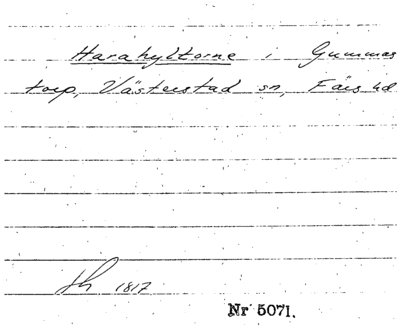 Harahyltorne i Gummas
torp, Västerstad sn, Färs hd
Sh 1817
Nr 5071.